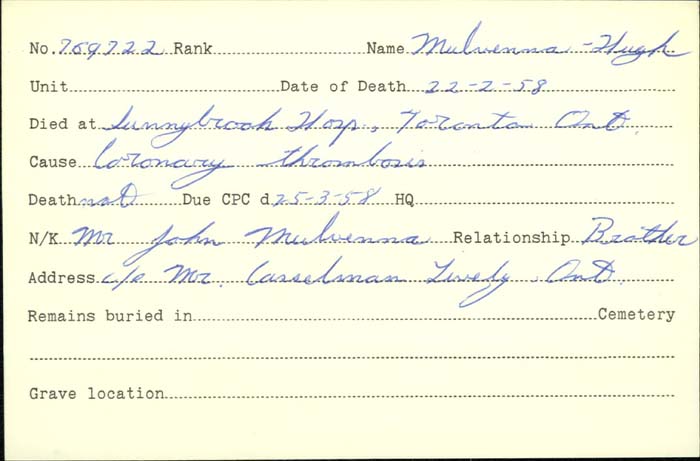 No. 769722 Rank Name Mulvenna - Hugh
Unit Date of Death 22-2-58
Died at Sunnybrook Hosp, Toronto Ont.
Cause Coronary thrombosis
Death not Due CPC d 25-3-58 HQ
N/K Mr John Mulvenna Relationship Brother
Address c/o Mr. Casselman Lively Ont.
Remains buried in Cemetery
Grave location